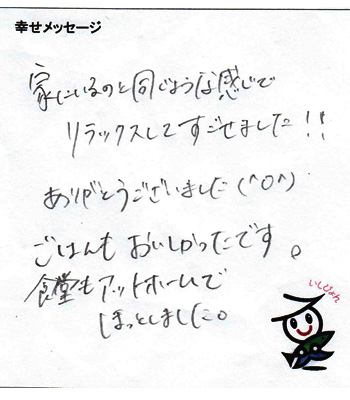 幸せメッセージ
家にいるのと同じような感じで
リラックスしてすごせました!!
ありがとうございました(^O^)
ごはんもおいしかったです。
食堂もアットホームで
ほっとしました。